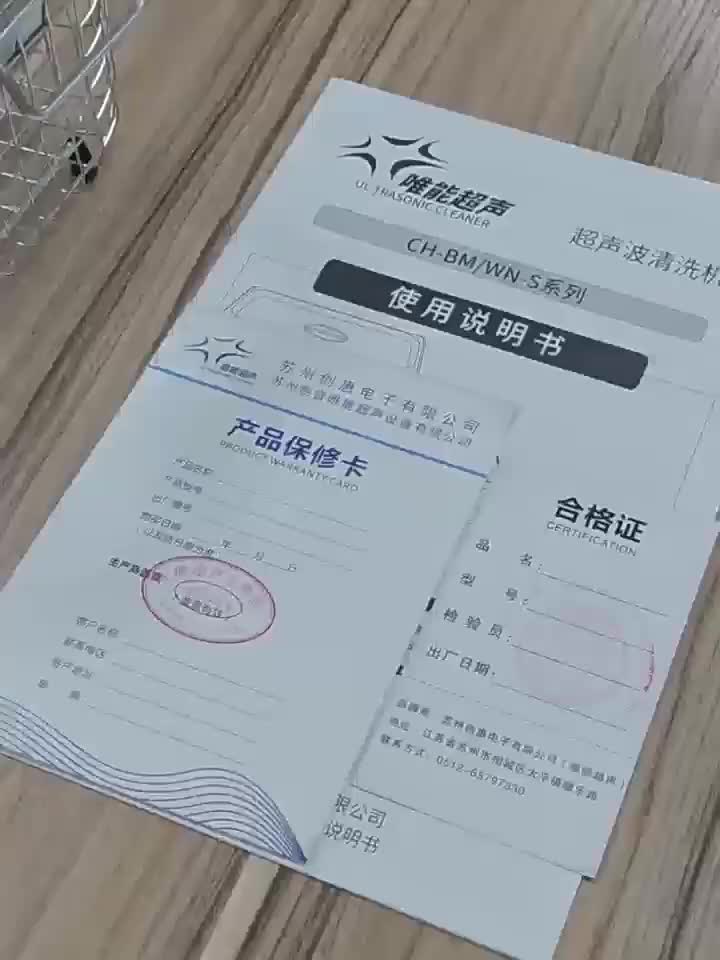 唯能超声
ULTRASONIC CLEANER
超声波清洗机
CH-BM/WN-S系列
使用说明书
唯能超声
苏州创惠电子有限公司
苏州创音唯能超声设备有限公司
产品保修卡
PRODUCT WARRANTY CARD
产品名称
产品型号
出厂编号
购买日期 年 月 日
生产商盖章
客户名称
联系电话
客户地址
合格证
CERTIFICATION
品 名:
型 号:
检验员:
出厂日期:
苏州创惠电子有限公司(唯能超声)
地址: 江苏省苏州市相城区太平镇
联系方式: 0512-65797330
限公司
说明书